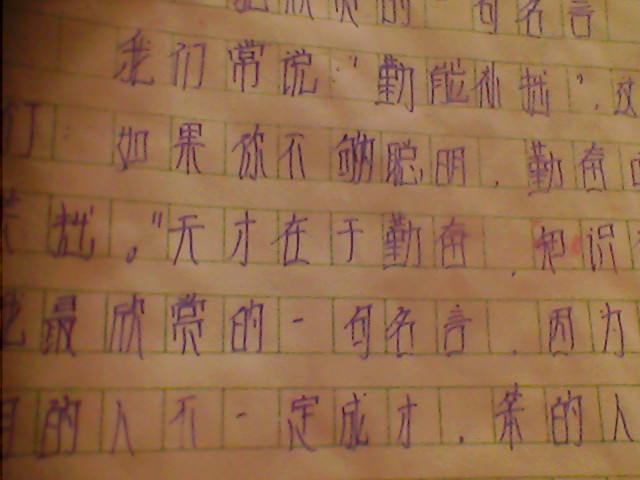 欣赏的一句名言
我们常说："勤能补拙"，这
们：如果你不够聪明，勤奋
拙。"天才在于勤奋，知识
我最欣赏的一句名言，因为
明的人不一定成才，笨的人